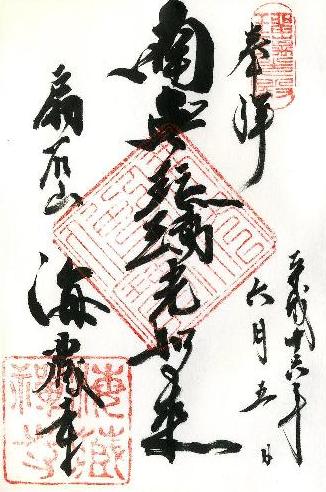 奉拝
平成十六年
六月五日
南無瑠璃光如来
扇谷山
海蔵寺
海蔵
禅寺